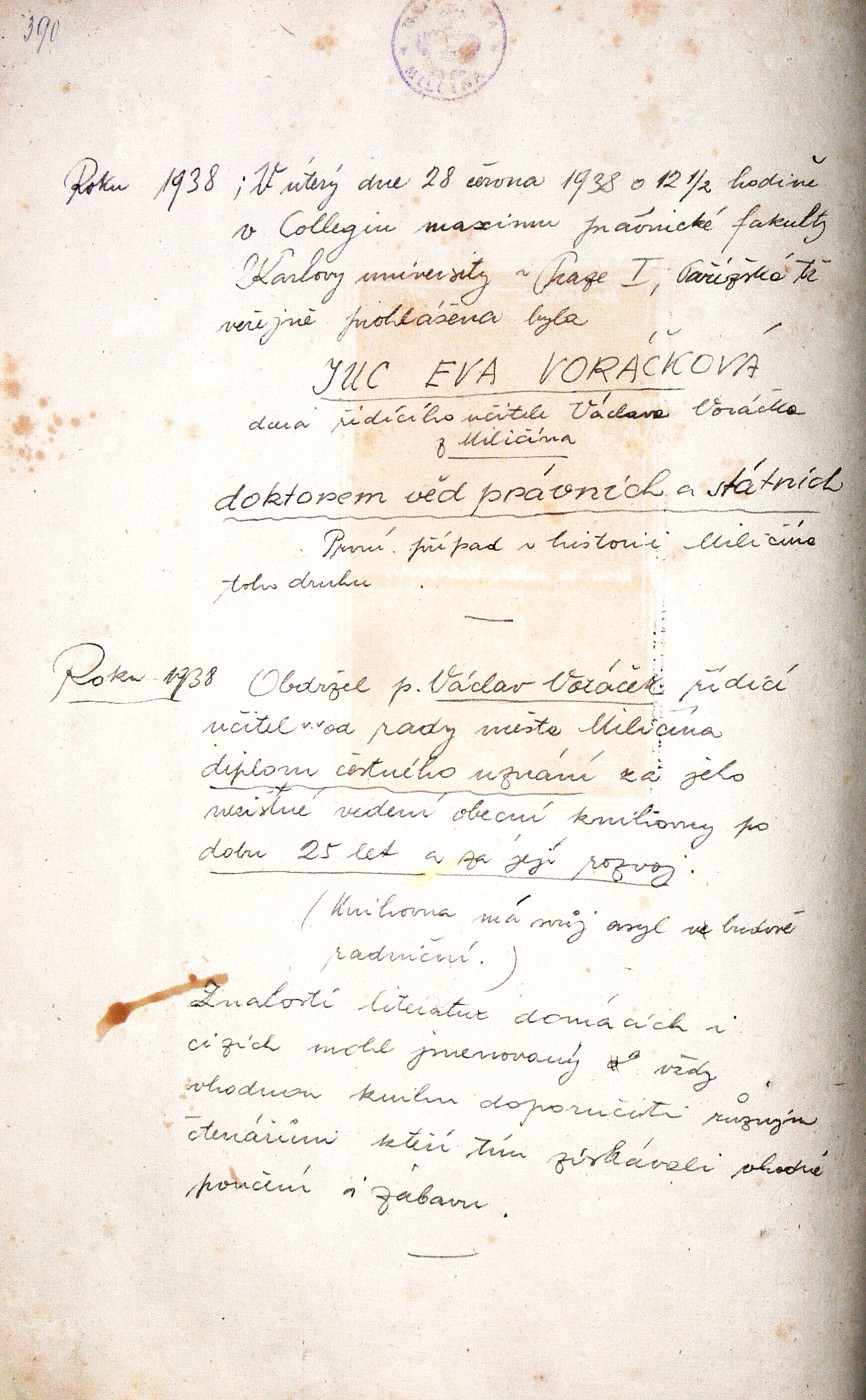 390
MILČÍNA
Roku 1938 ; V úterý dne 28 června 1938 o 12 1/2 hodině
v Collegiu maximu právnické fakulty
Karlovy university v Praze I, Pařížská tř
veřejně prohlášena byla
JUC EVA VORÁČKOVÁ
dcera řídícího učitele Václava Voráčka
z Miličína
doktorem věd právních a státních
První případ v historii Miličína
toho druhu
Roku 1938 Obdržel p. Václav Voráček řídící
učitel od rady města Miličína
diplom čestného uznání za jeho
nezištné vedení obecní knihovny po
dobu 25 let a za její rozvoj.
(Knihovna má svůj asyl ve budově
radniční.)
Znalostí literatur domácích i
cizích mohl jmenovaný vždy
vhodnou knihu doporučiti různým
čtenářům kteří tím získávali vhodné
poučení i zábavu.